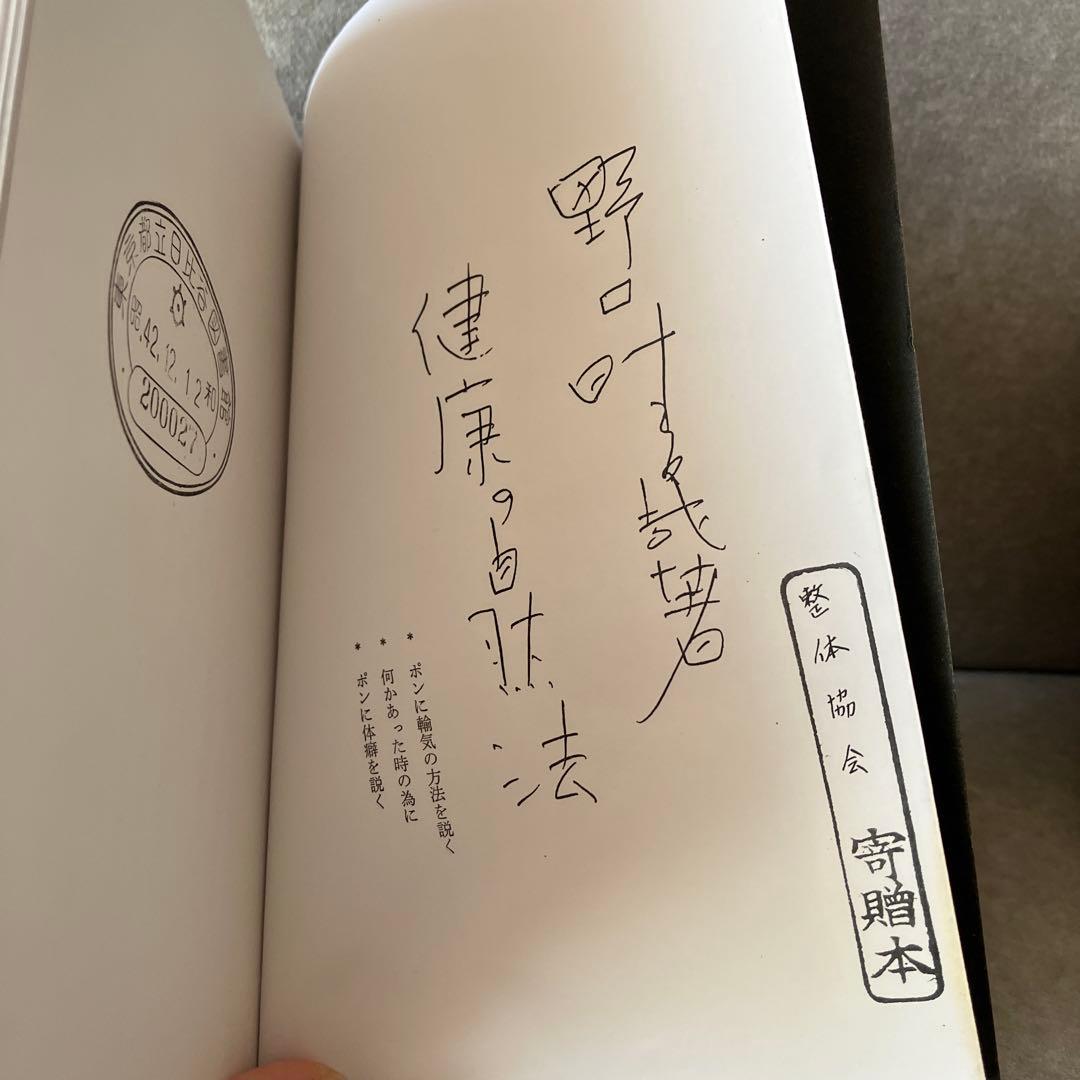 整体協会 寄贈本
野口晴哉著
健康の自然法
* ポンに輸気の方法を説く
* 何かあった時の為に
* ポンに体癖を説く
東京都立日比谷図書館
昭42.12.12和
200027